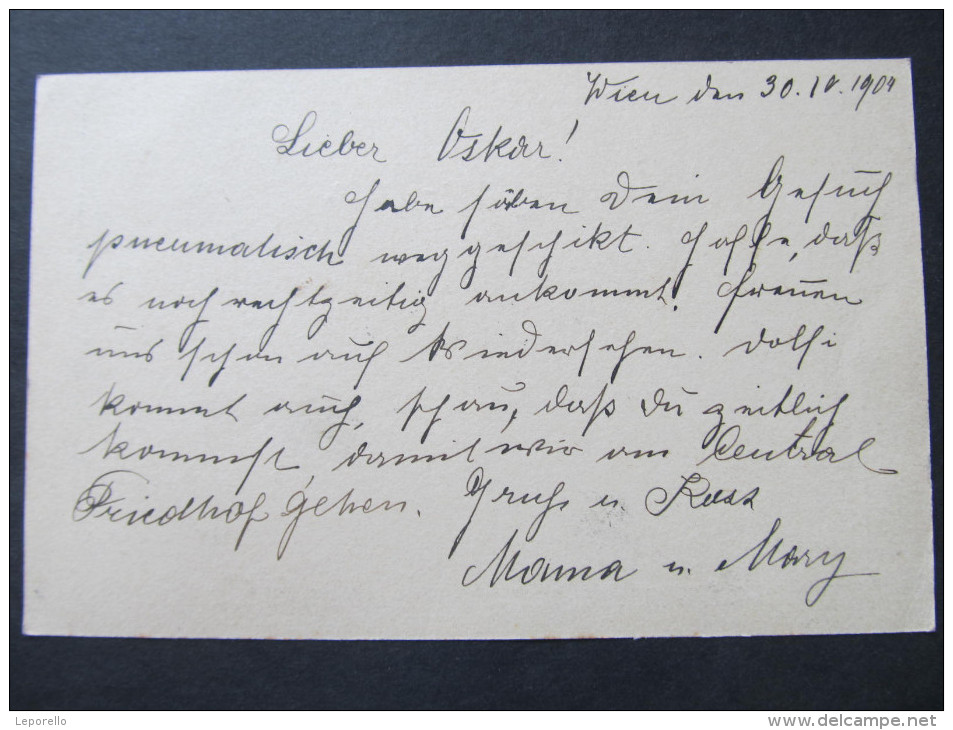 Wien den 30. IV. 1904
Lieber Oskar!
Habe soeben Dein Gesuch
pneumatisch weggeschikt. Hoffe, daß
es noch rechtzeitig ankommt. Freuen
uns schon auf Wiedersehen. Dolfi
kommt auch, schau, daß du zeitlich
kommst, damit wir am Central
Friedhof gehen. Gruß u. Kuss
Mama u. Mary
Leporello
www.delcampe.net